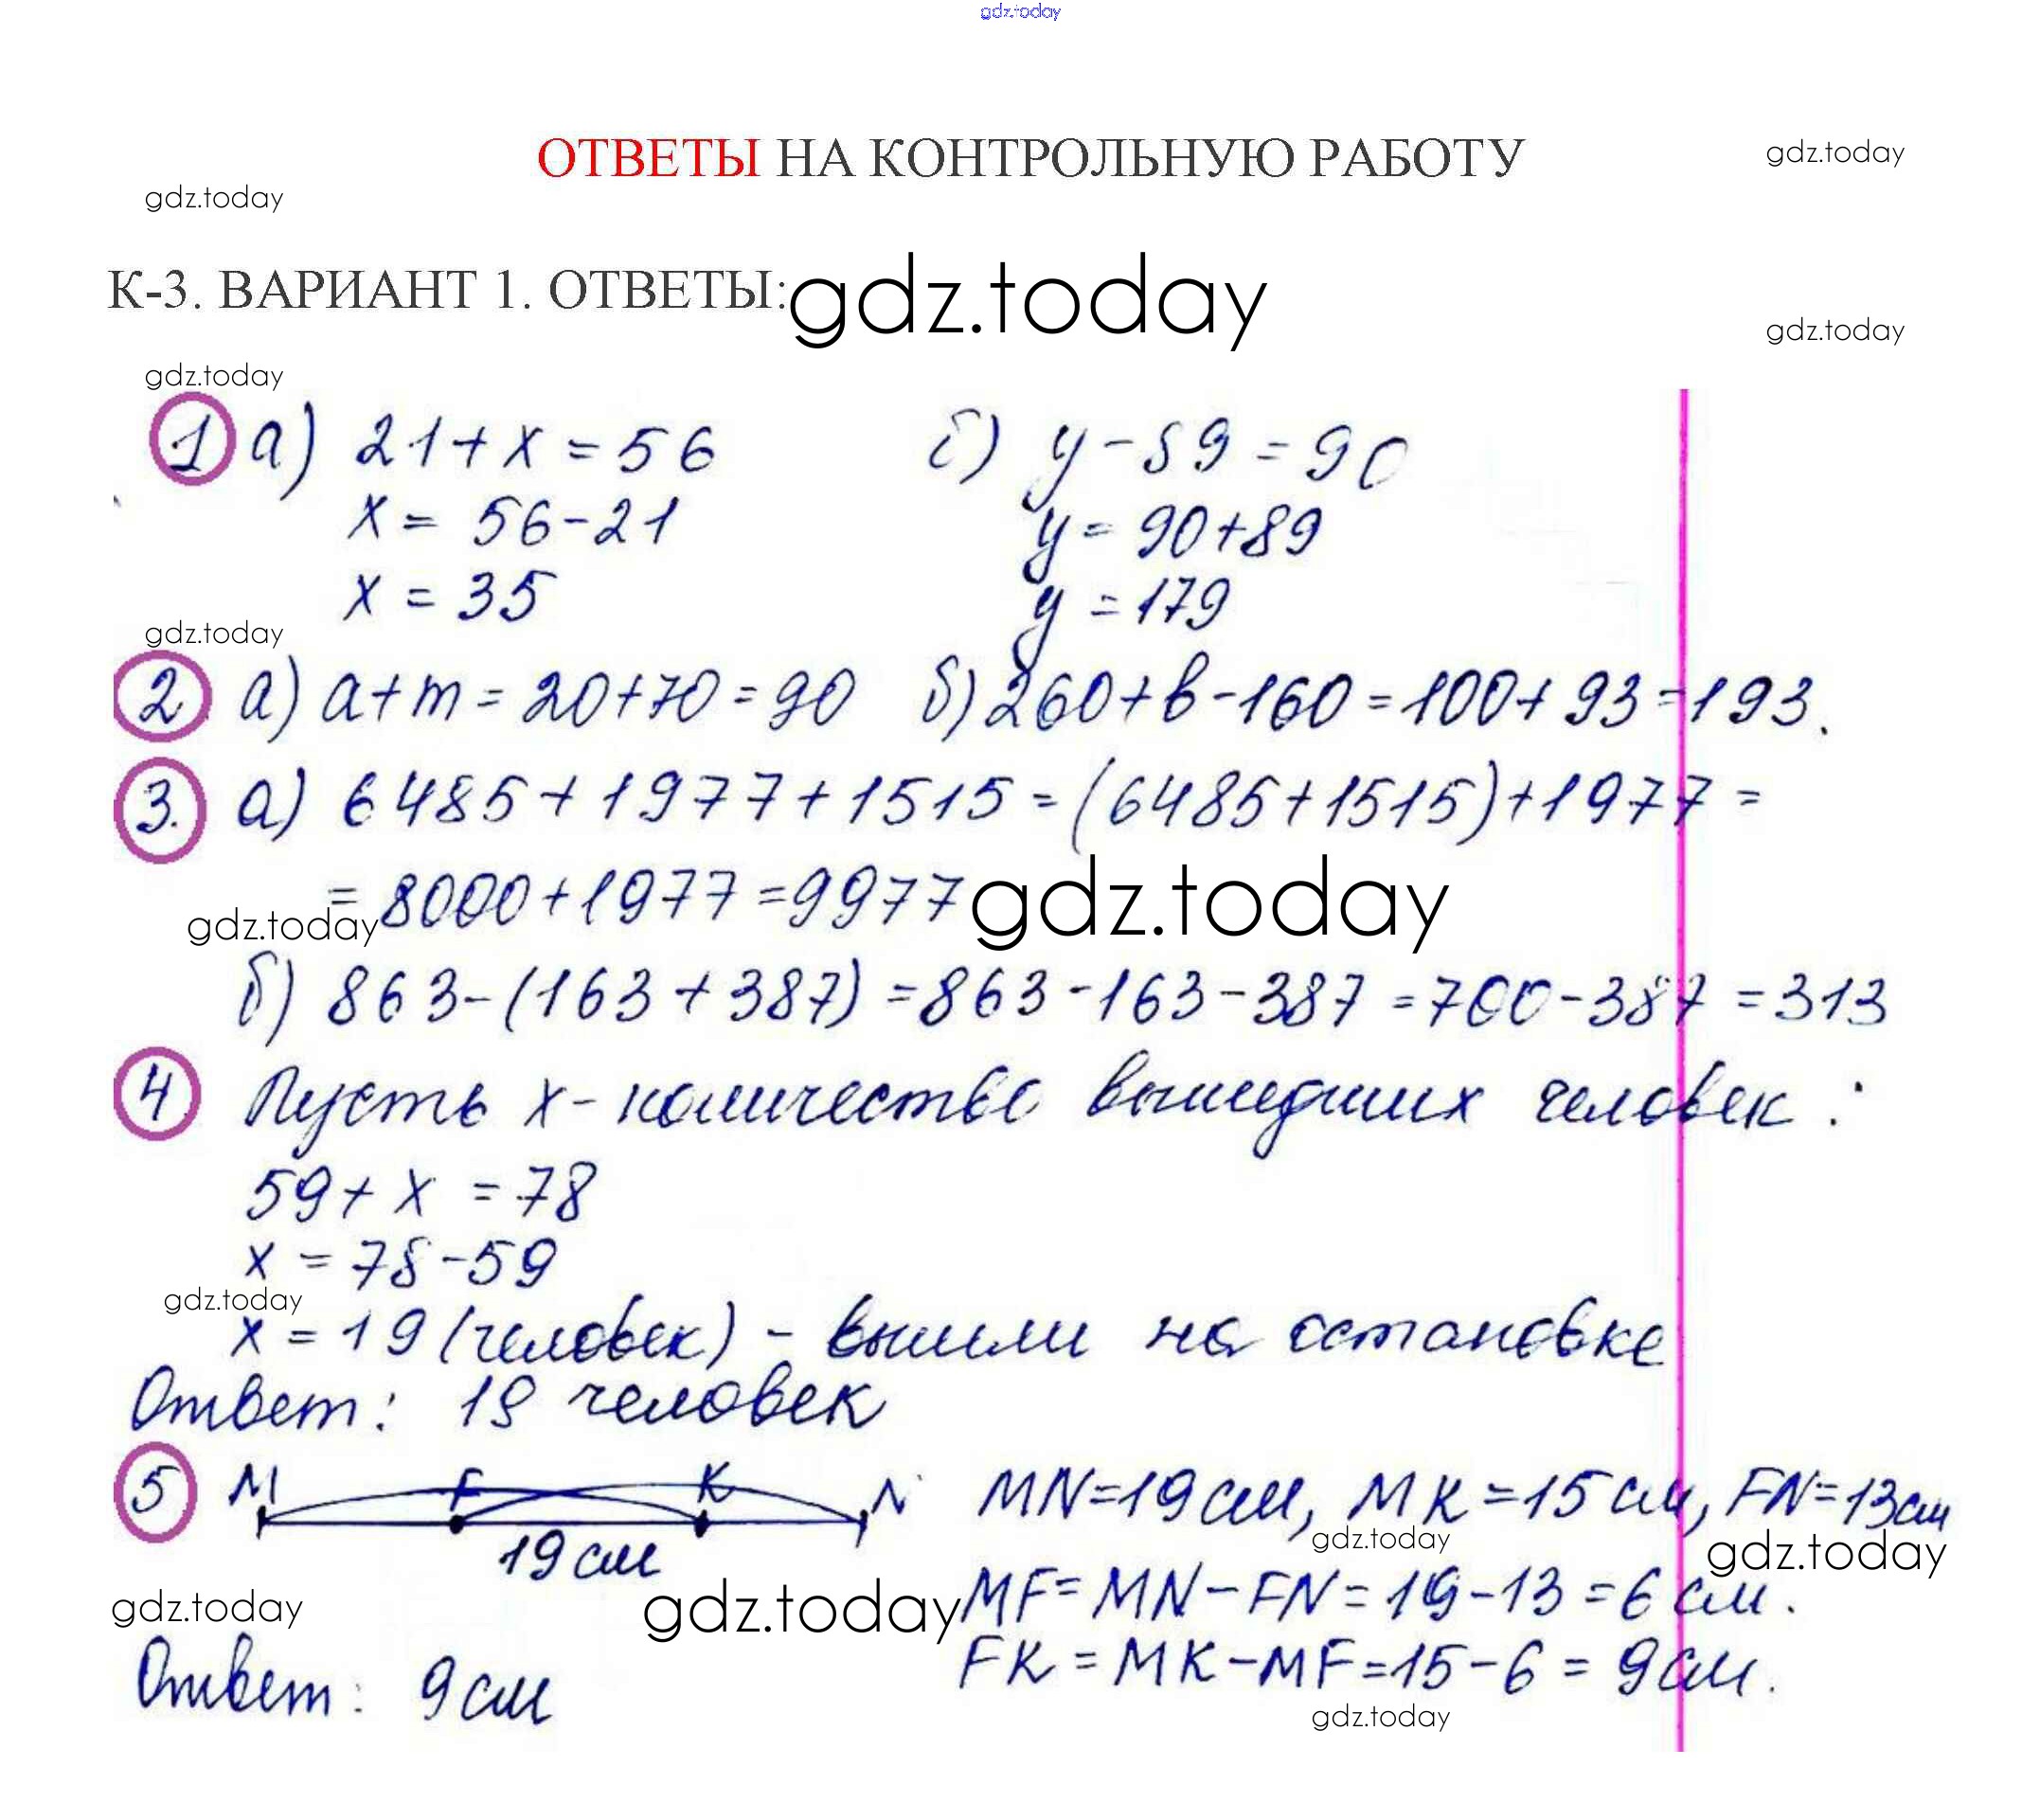 gdz.today
ОТВЕТЫ НА КОНТРОЛЬНУЮ РАБОТУ
gdz.today
gdz.today
К-3. ВАРИАНТ 1. ОТВЕТЫ:
gdz.today
gdz.today
gdz.today
1 а) 21+x=56 б) y-89=90
x= 56-21 y=90+89
x = 35 y=179
gdz.today
2 а) a+m=20+70=90 б) 260+b-160=100+93=193.
3. а) 6485+1977+1515=(6485+1515)+1977=
=8000+1977=9977
gdz.today
gdz.today
б) 863-(163+387)=863-163-387=700-387=313
4 Пусть x-количество вышедших человек:
59+x=78
x=78-59
gdz.today
x=19 (человек) - вышли на остановке
Ответ: 19 человек
5 M F K N MN=19см, MK=15см, FN=13см
19см
gdz.today
gdz.today
gdz.today
gdz.today
MF=MN-FN=19-13=6см.
FK=MK-MF=15-6=9см.
Ответ: 9см
gdz.today